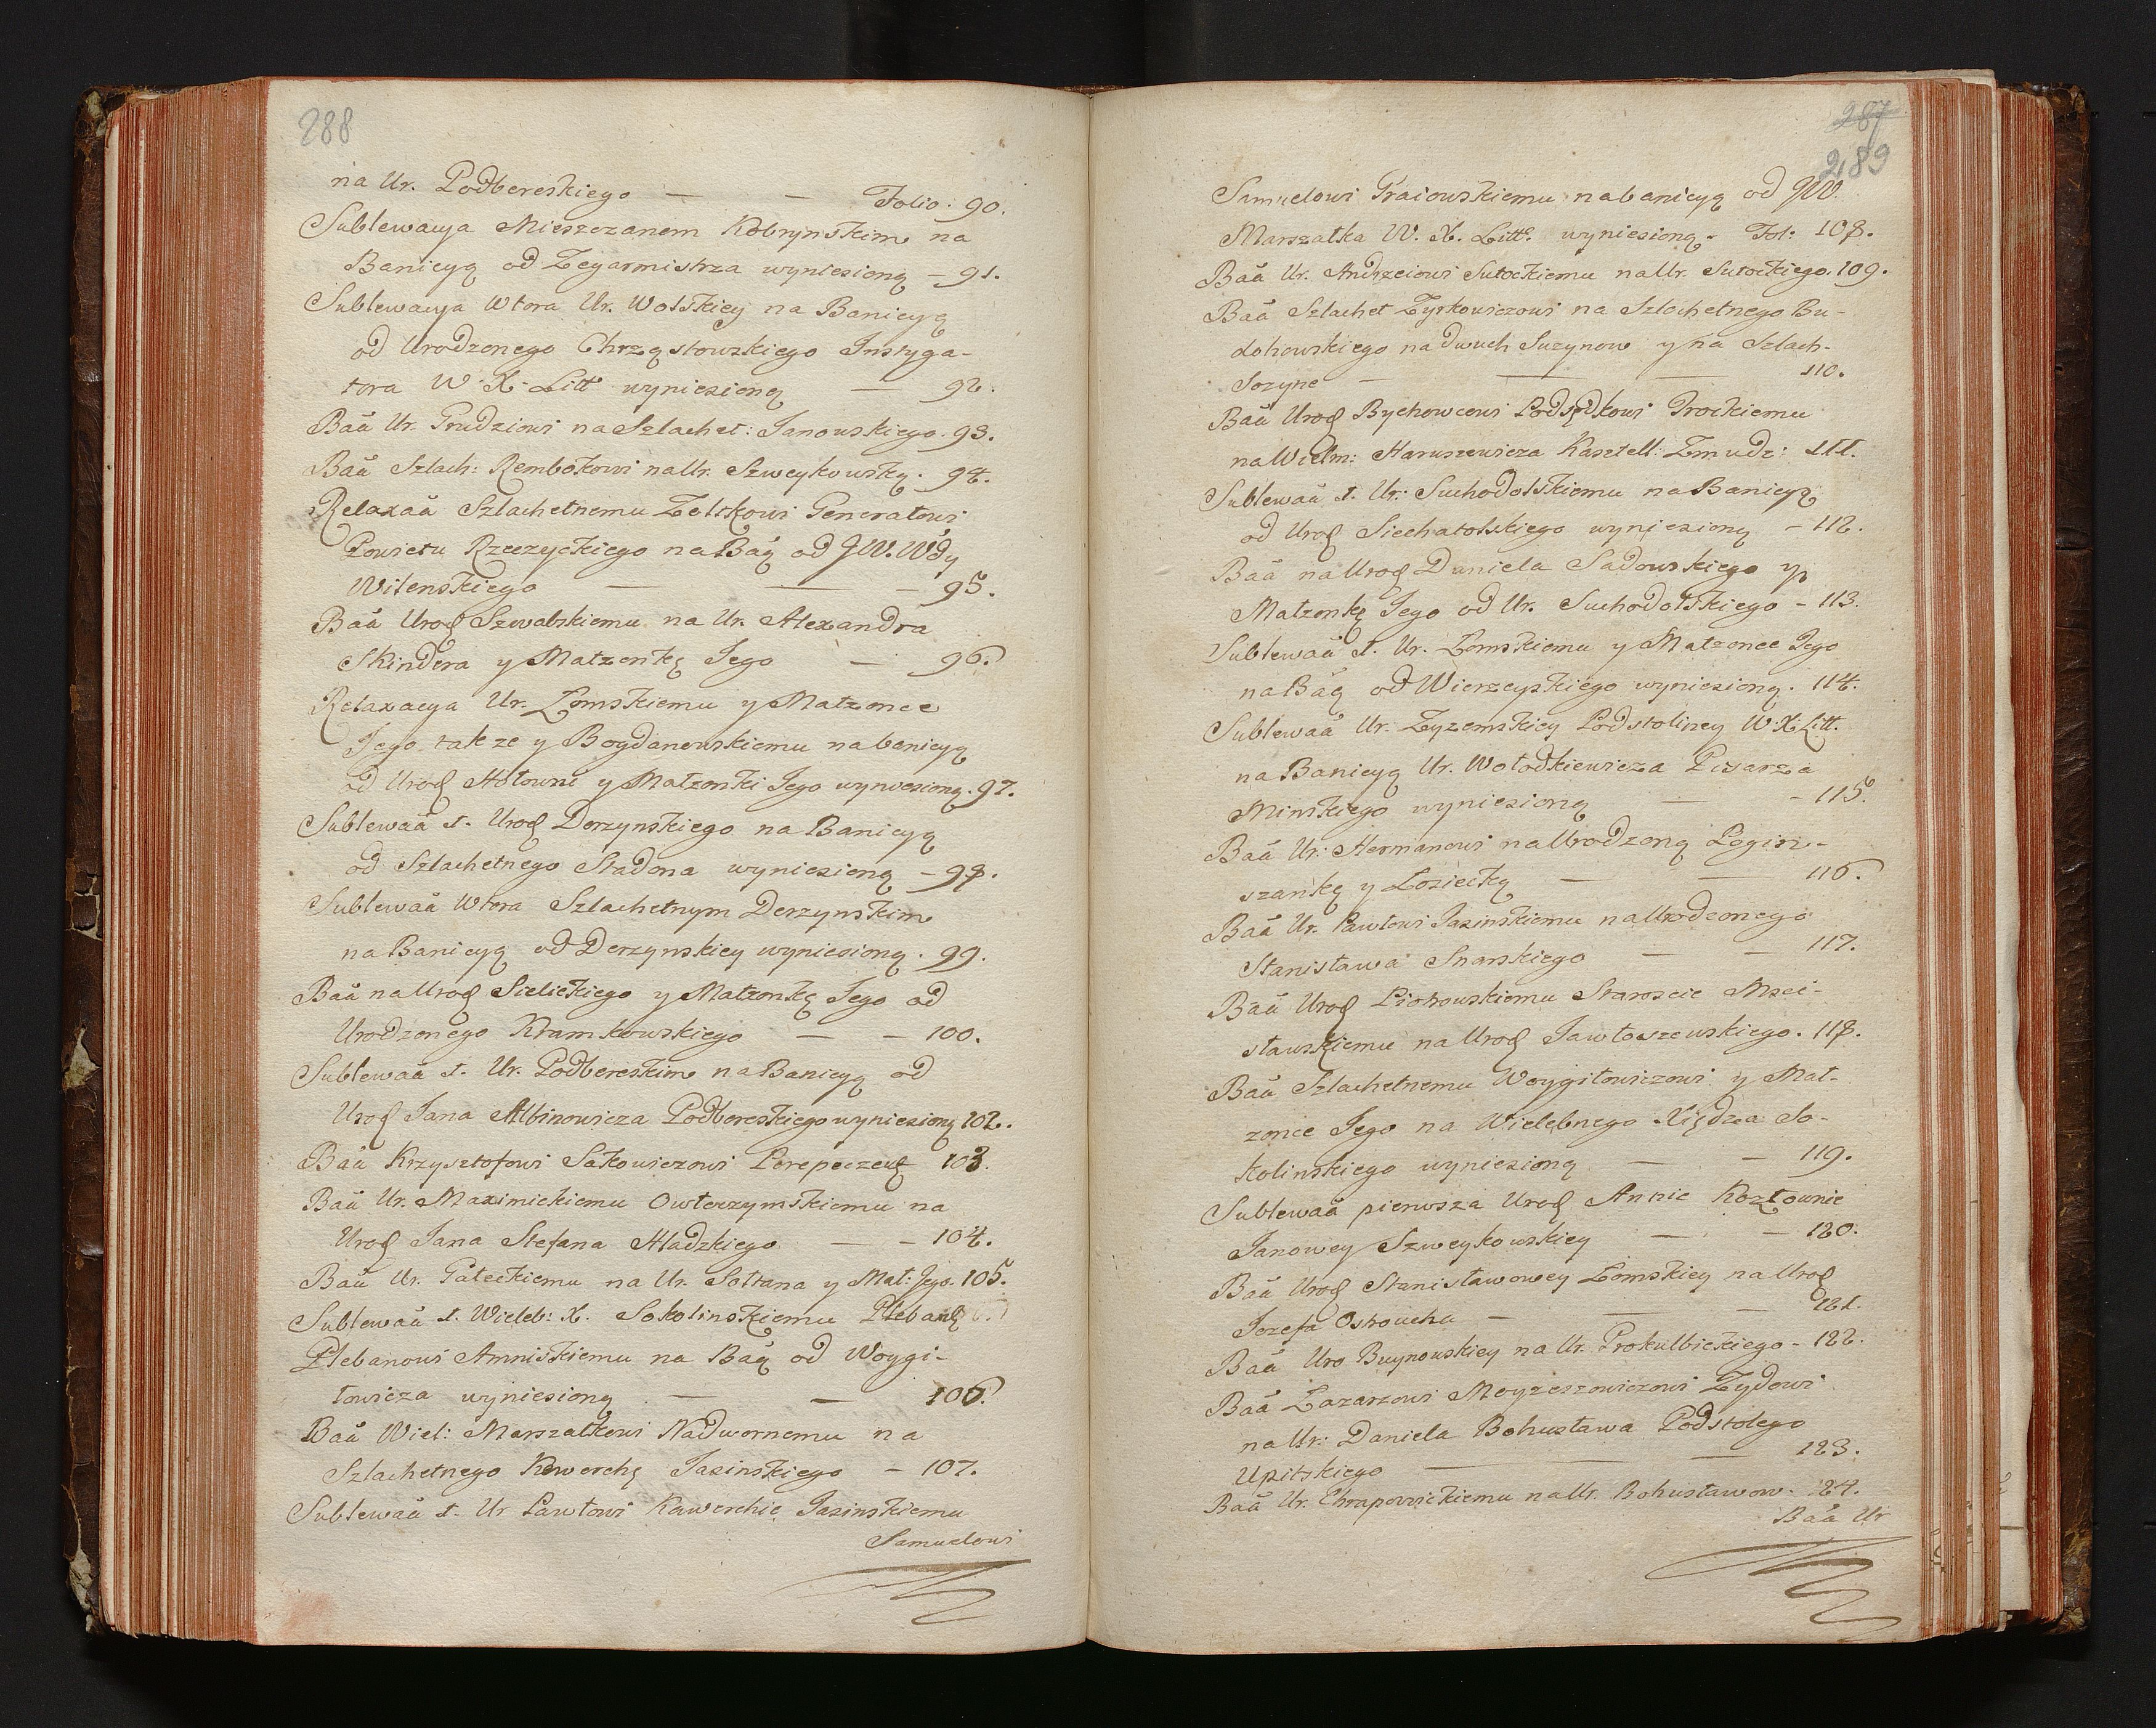 288
na Ur. Podbereskiego — — Folio. 90.
Sublewacya Mieszczanem Kobrynskim na
Banicyą od Zegarmistrza wyniesioną – 91.
Sublewacya wtora Ur. Wolskiey na Banicyą
od Urodzonego Chrząstowskiego Instyga-
tora W. X. Litt wyniesioną — 92.
Baã Ur. Grudziowi na Szlachet: Janowskiego. 93.
Baã Szlach: Rembokowi na Ur. Szweykowską. 94.
Relaxaã Szlachetnemu Zelskowi Generałowi
Powietu Rzeczyckiego na Bãą od JW. Wdy
Wilenskiego — — – 95.
Baã Urod Szwabskiemu na Ur. Alexandra
Skindera y Małzonkę Jego — 96.
Relaxacya Ur. Łomskiemu y Małzonce
Jego takze y Bogdanowskiemu na banicyą
od Urod Hołowni y Małzonki Jego wyniesioną. 97.
Sublewaã 1. Urod Derzynskiego na Banicyą
od Szlachetnego Stadona wyniesioną – 98.
Sublewaã wtora Szlachetnym Derzynskim
na Banicyą od Derzynskiey wyniesioną. 99.
Baã na Urod Sielickiego y Małzonkę Jego od
Urodzonego Kramkowskiego — — 100.
Sublewaã 1. Ur. Podbereskim na Banicyą od
Urod Jana Albinowicza Podbereskiego wyniesioną 102.
Baã Krzysztofowi Sakowiczowi Porepeczend 103.
Baã Ur. Maximickiemu Owłoczymskiemu na
Urod Jana Stefana Hladzkiego — – 104.
Baã Ur. Gałeckiemu na Ur. Sołtana y Mał: Jego. 105.
Sublewaã 1. Wieleb: X. Sokolinskiemu
Plebanowi Amniskiemu na Bãą od Woygi-
łowicza wyniesioną — — 106.
Baã Wiel: Marszałkowi Nadwornemu na
Szlachetnego Kawerchę Jasinskiego – 107.
Sublewaã 1. Ur Pawłowi Kawerchie Jasinskiemu
Samuelowi
287
289
Samuelowi Graiowskiemu na banicyą od JW.
Marszałka W. X. Litt. wyniesioną – Fol: 108.
Baã Ur. Andrzeiowi Sutockiemu na Ur. Sutockiego. 109.
Baã Szlachet Zyrkowiczowi na Szlachetnego Bu-
dohowskiego na dwuch Suzynow y na Szlach-
Sozyne — — — 110.
Baã Urod Bychowcowi Podsędkowi Trockiemu
na Wielm: Haruszewicza Kasztell: Zmudz: 111.
Sublewaã 1. Ur: Suchodolskiemu na Banicyą
od Urod Siechatolskiego wyniesioną – 112.
Baã na Urod Daniela Sadowskiego y
Małzonkę Jego od Ur. Suchodolskiego – 113.
Sublewaã 1. Ur. Łomskiemu y Małzonce Jego
na Bãą od Wierzeyskiego wyniesioną. 114.
Sublewaã Ur. Zyzemskiey Podstoliney W: X: Litt.
na Banicyą Ur. Wołodkiewicza Pisarza
Minskiego wyniesioną — – 115.
Baã Ur: Hermanowi na Urodzoną Pogir-
szankę y Łoziecką — — 116.
Baã Ur. Pawłowi Jasinskiemu na Urodzonego
Stanisława Snarskiego — — 117.
Baã Urod Piotrowskiemu Staroscie Msci-
sławskiemu na Urod Jawłoszewskiego. 118.
Baã Szlachetnemu Woygiłowiczowi y Mał-
zonce Jego na Wielebnego Xiędza So-
kolinskiego wyniesioną — – 119.
Sublewaã pierwsza Urod Annie Kozłownie
Janowey Szweykowskiey — – 120.
Baã Urod Stanisławowey Łomskiey na Urod
Jozefa Ostroucha — — — 121.
Baã Uro Buynowskiey na Ur. Prokulbickiego – 122.
Baã Łazarzowi Moyzeszowiczowi Zydowi
na Ur: Daniela Bohusława Podstolego
Upitskiego — — — 123.
Baã Ur. Chrapowickiemu na Ur. Bohusławow. 124.
Baã Ur